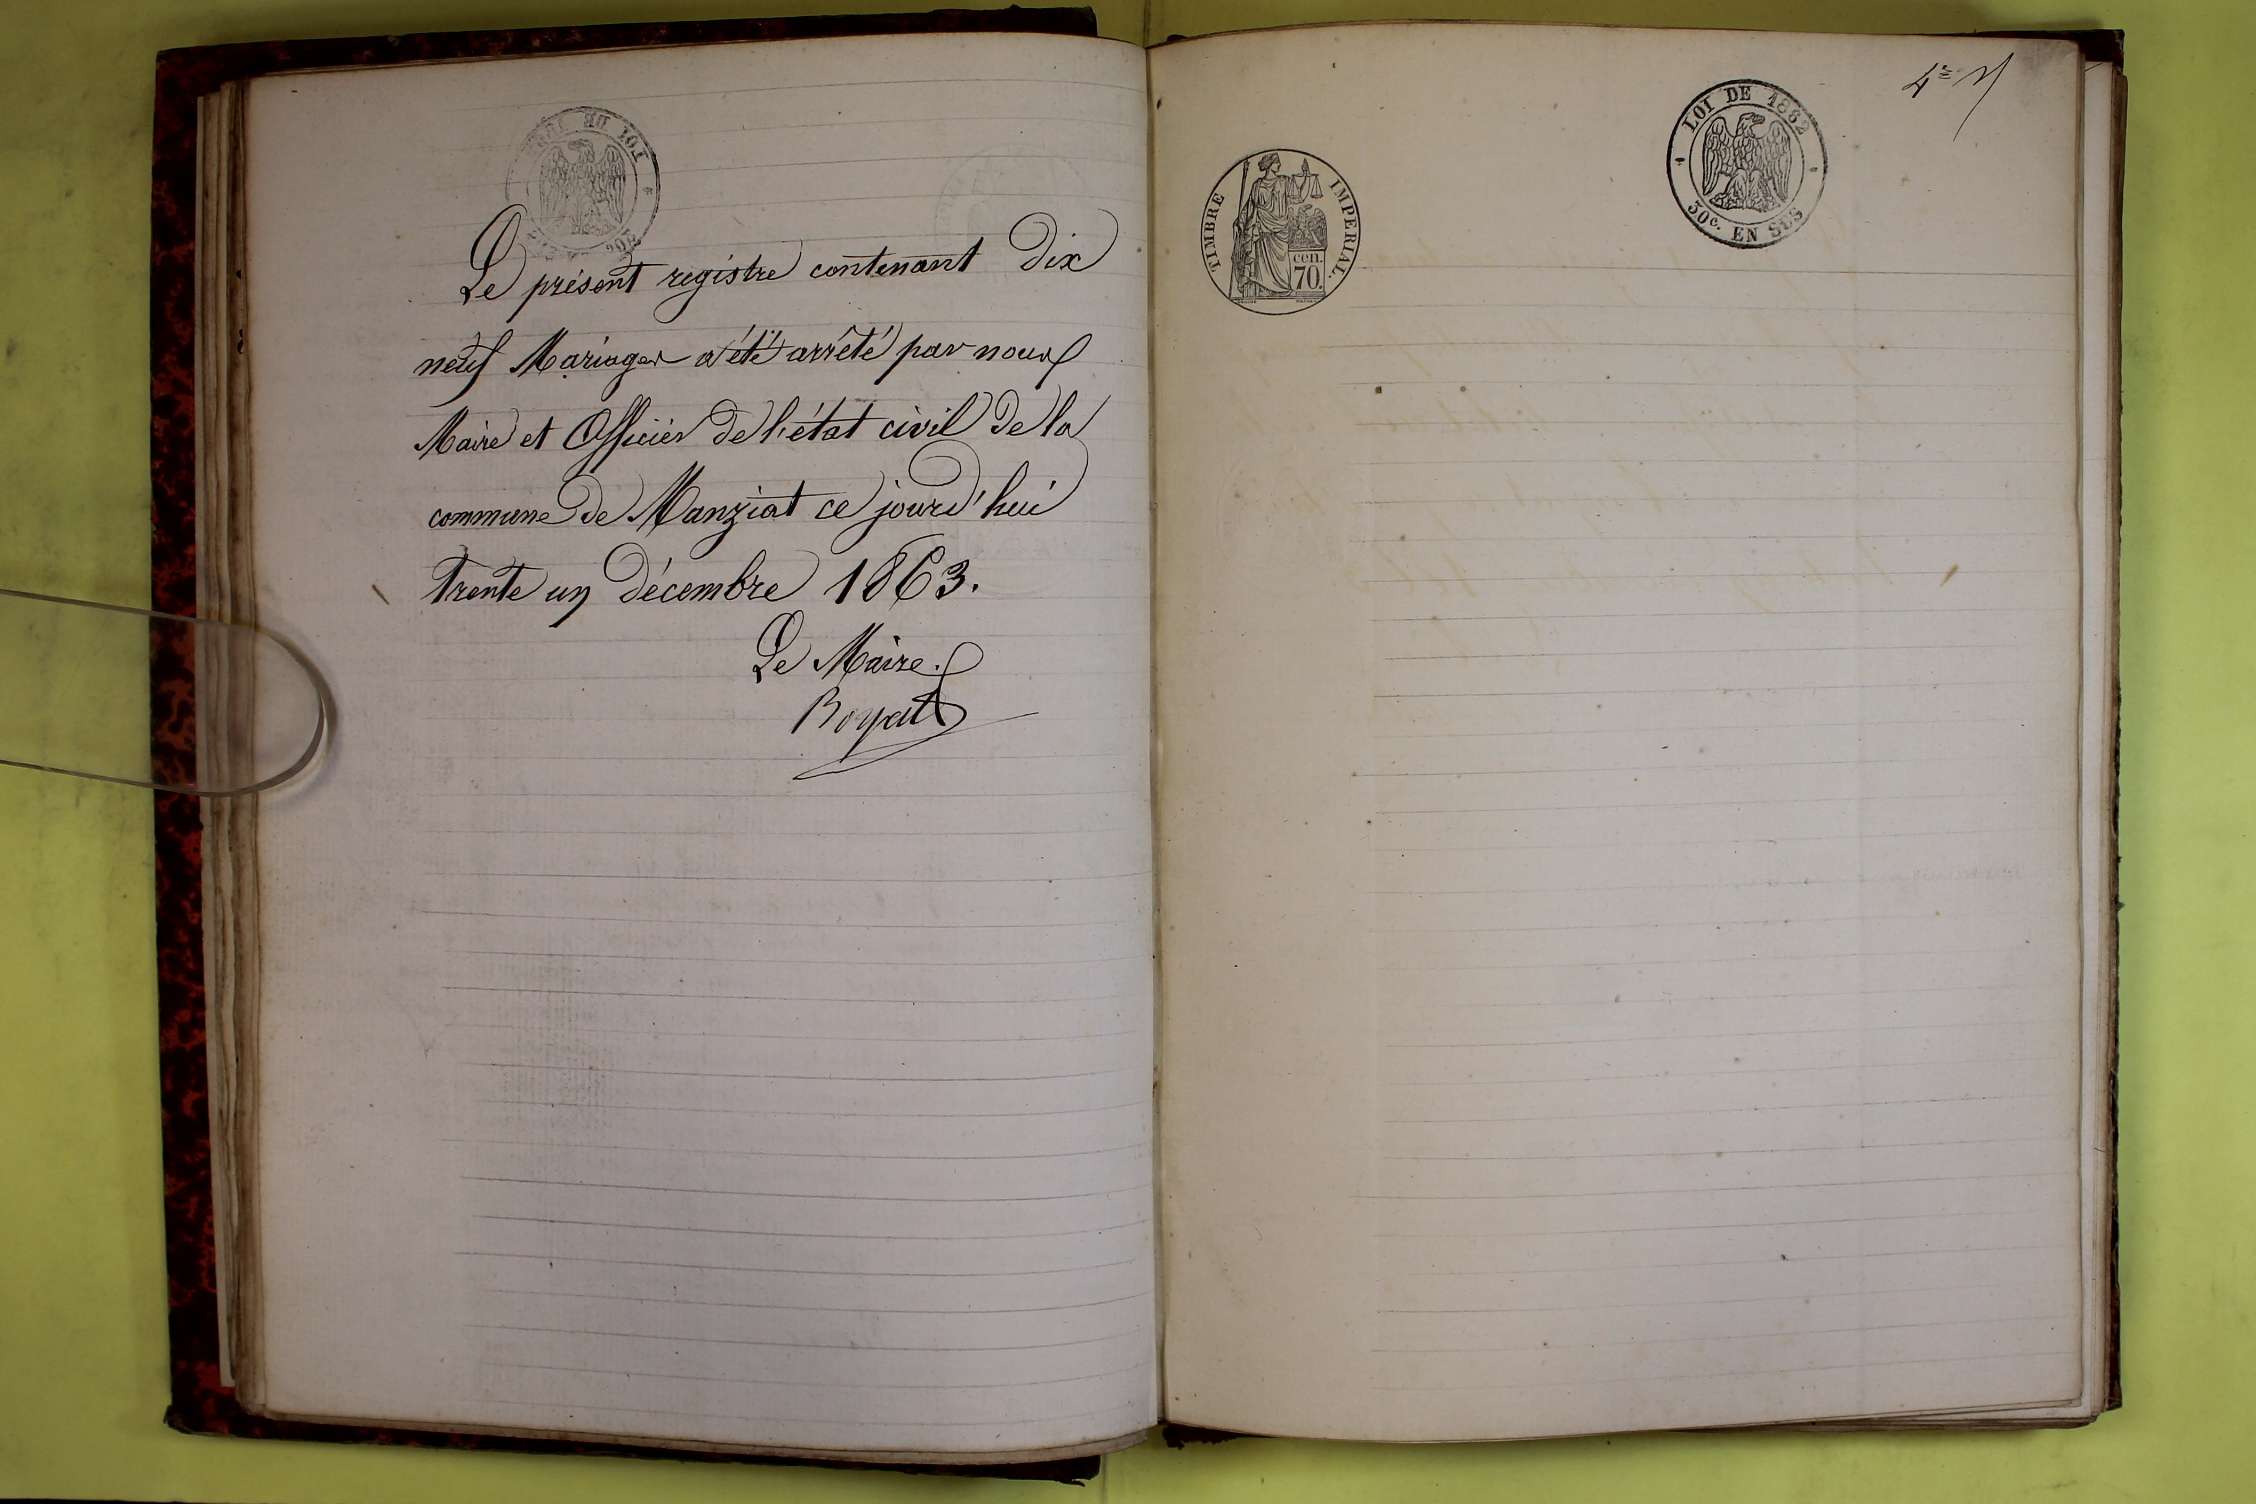 Le présent registre contenant dix
neuf Mariages a été arrêté par nous
Maire et Officier de l'état civil de la
commune de Manziat ce jourd'hui
trente un décembre 1863.
Le Maire.
Boyat
TIMBRE IMPERIAL.
cen.
70.
LOI DE 1862
30c. EN SUS